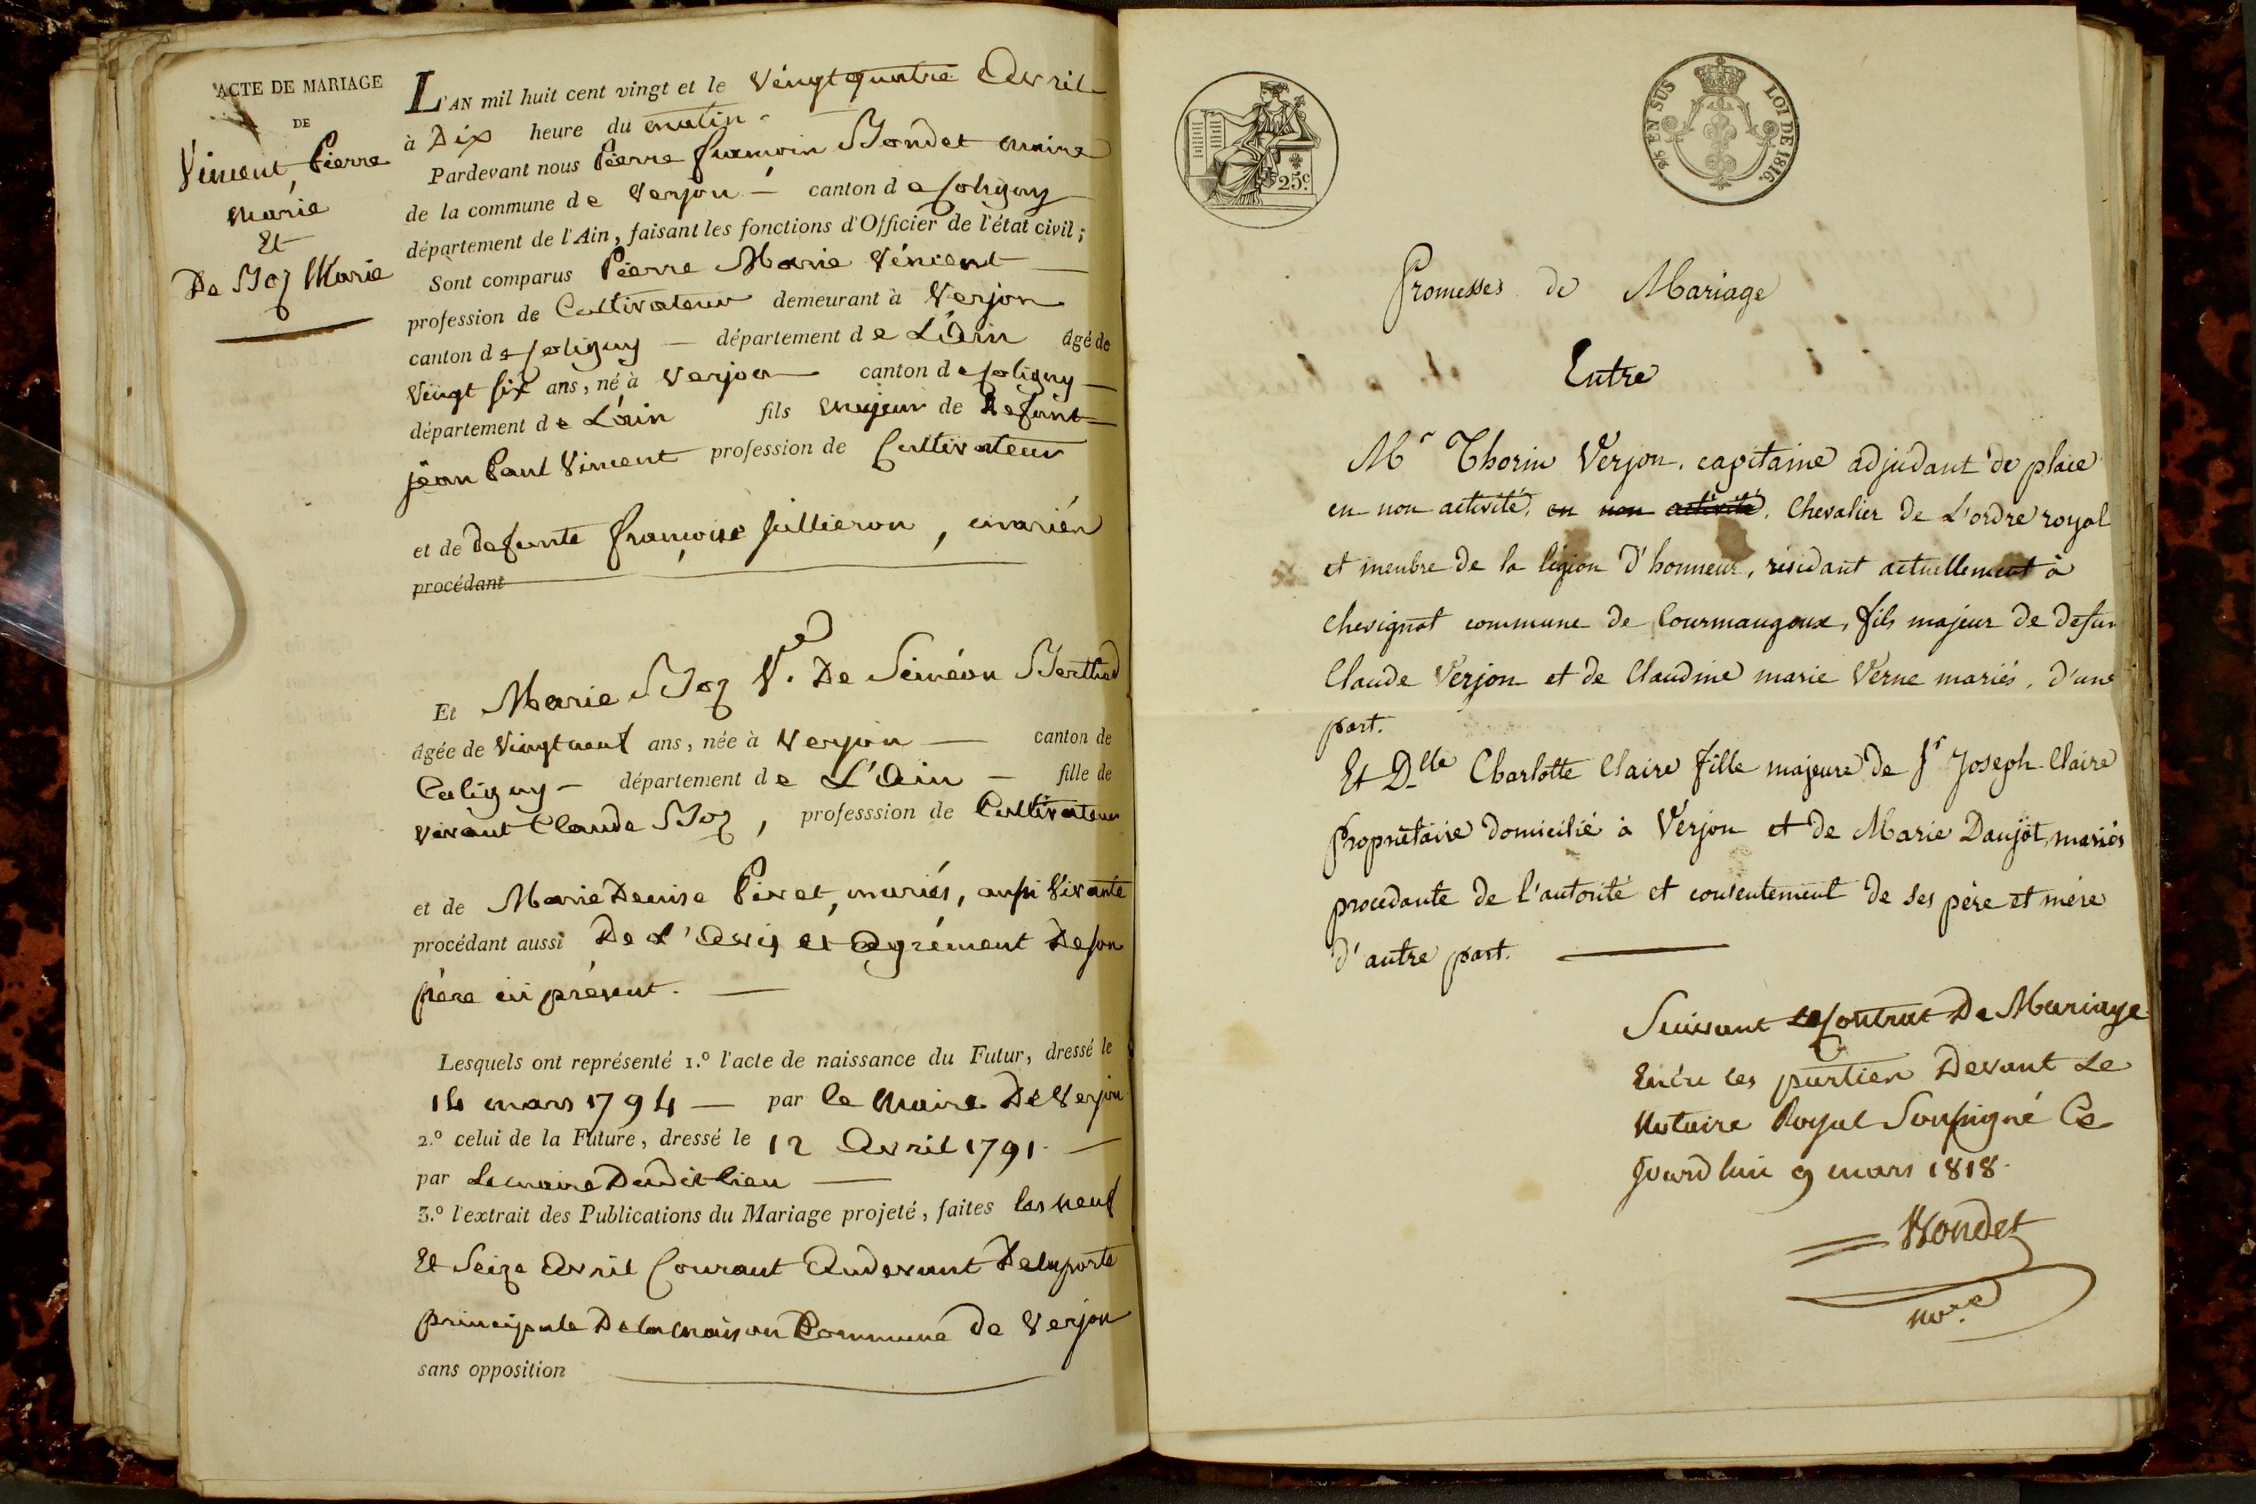 ACTE DE MARIAGE
DE
Vincent Pierre
marie
Et
De Boz Marie
L'AN mil huit cent vingt et le vingt quatre Avril
à Dix heure du matin.
Pardevant nous Pierre françois Bondet maire
de la commune de Verjon — canton de Coligny
département de l'Ain, faisant les fonctions d'Officier de l'état civil;
Sont comparus Pierre Marie Vincent —
profession de Cultivateur demeurant à Verjon
canton de Coligny — département de L'Ain âgé de
vingt six ans, né à Verjon canton de Coligny —
département de L'ain fils majeur de Defunt
jean Paul Vincent profession de Cultivateur
et de defunte françoise Jullieron, mariés
procédant
Et Marie Boz Ve. De Siméon Berthed
âgée de vingt neuf ans, née à Verjon — canton de
Coligny — département de L'Ain — fille de
vivant Claude Boz, professsion de Cultivateur
et de Marie Denise Pivet, mariés, aussi vivante
procédant aussi De L'Avis et Agrément De son
père ici présent. —
Lesquels ont représenté 1.º l'acte de naissance du Futur, dressé le
14 mars 1794 — par le maire De Verjon
2.º celui de la Future, dressé le 12 Avril 1791. —
par Le maire Dudit lieu —
3.º l'extrait des Publications du Mariage projeté, faites les neuf
Et Seize Avril Courant Audevant De la porte
principale De la maison Commune de Verjon
sans opposition
25c.
25 EN SUS LOI DE 1816.
Promesses de Mariage
Entre
Mr Thorin Verjon, capitaine adjudant de place
en non activité, en non activité, Chevalier de L'ordre royal
et menbre de la légion d'honneur, résidant actuellement à
chevignat commune de Courmangoux, fils majeur de defun
Claude Verjon et de Claudine marie Verne mariés, d'une
part.
Et Dlle Charlotte Claire fille majeure de Sr Joseph Claire
propriétaire domicilié à Verjon et de Marie Daujat, mariés
procedante de l'autorité et consentement de ses père et mère
d'autre part. —
Suivant le Contrat De Mariage
Entre les parties Devant Le
Notaire Royal Soussigné Ce
jourd'hui 9 mars 1818.
Bondet
nore.